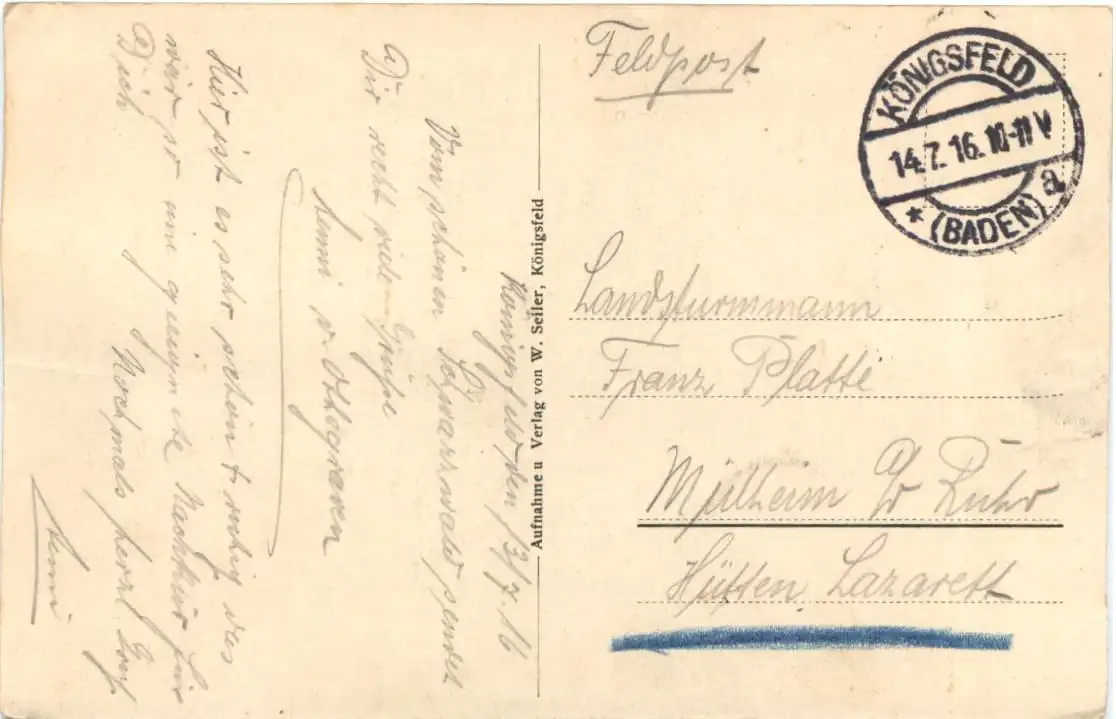 Feldpost
KÖNIGSFELD
14.7.16.10-11 V
* (BADEN) a
Landsturmmann
Franz Platte
Mülheim a/d Ruhr
Hütten Lazarett
Aufnahme u Verlag von W. Seiler, Königsfeld
Königsfeld den 13/7.16
Vom schönen Schwarzwald sendet
Dir recht viele Grüße
Hier ist es sehr schön + ruhig das
wär so eine geeignete Nachkur für
Dich. Nochmals herzl. Gruß